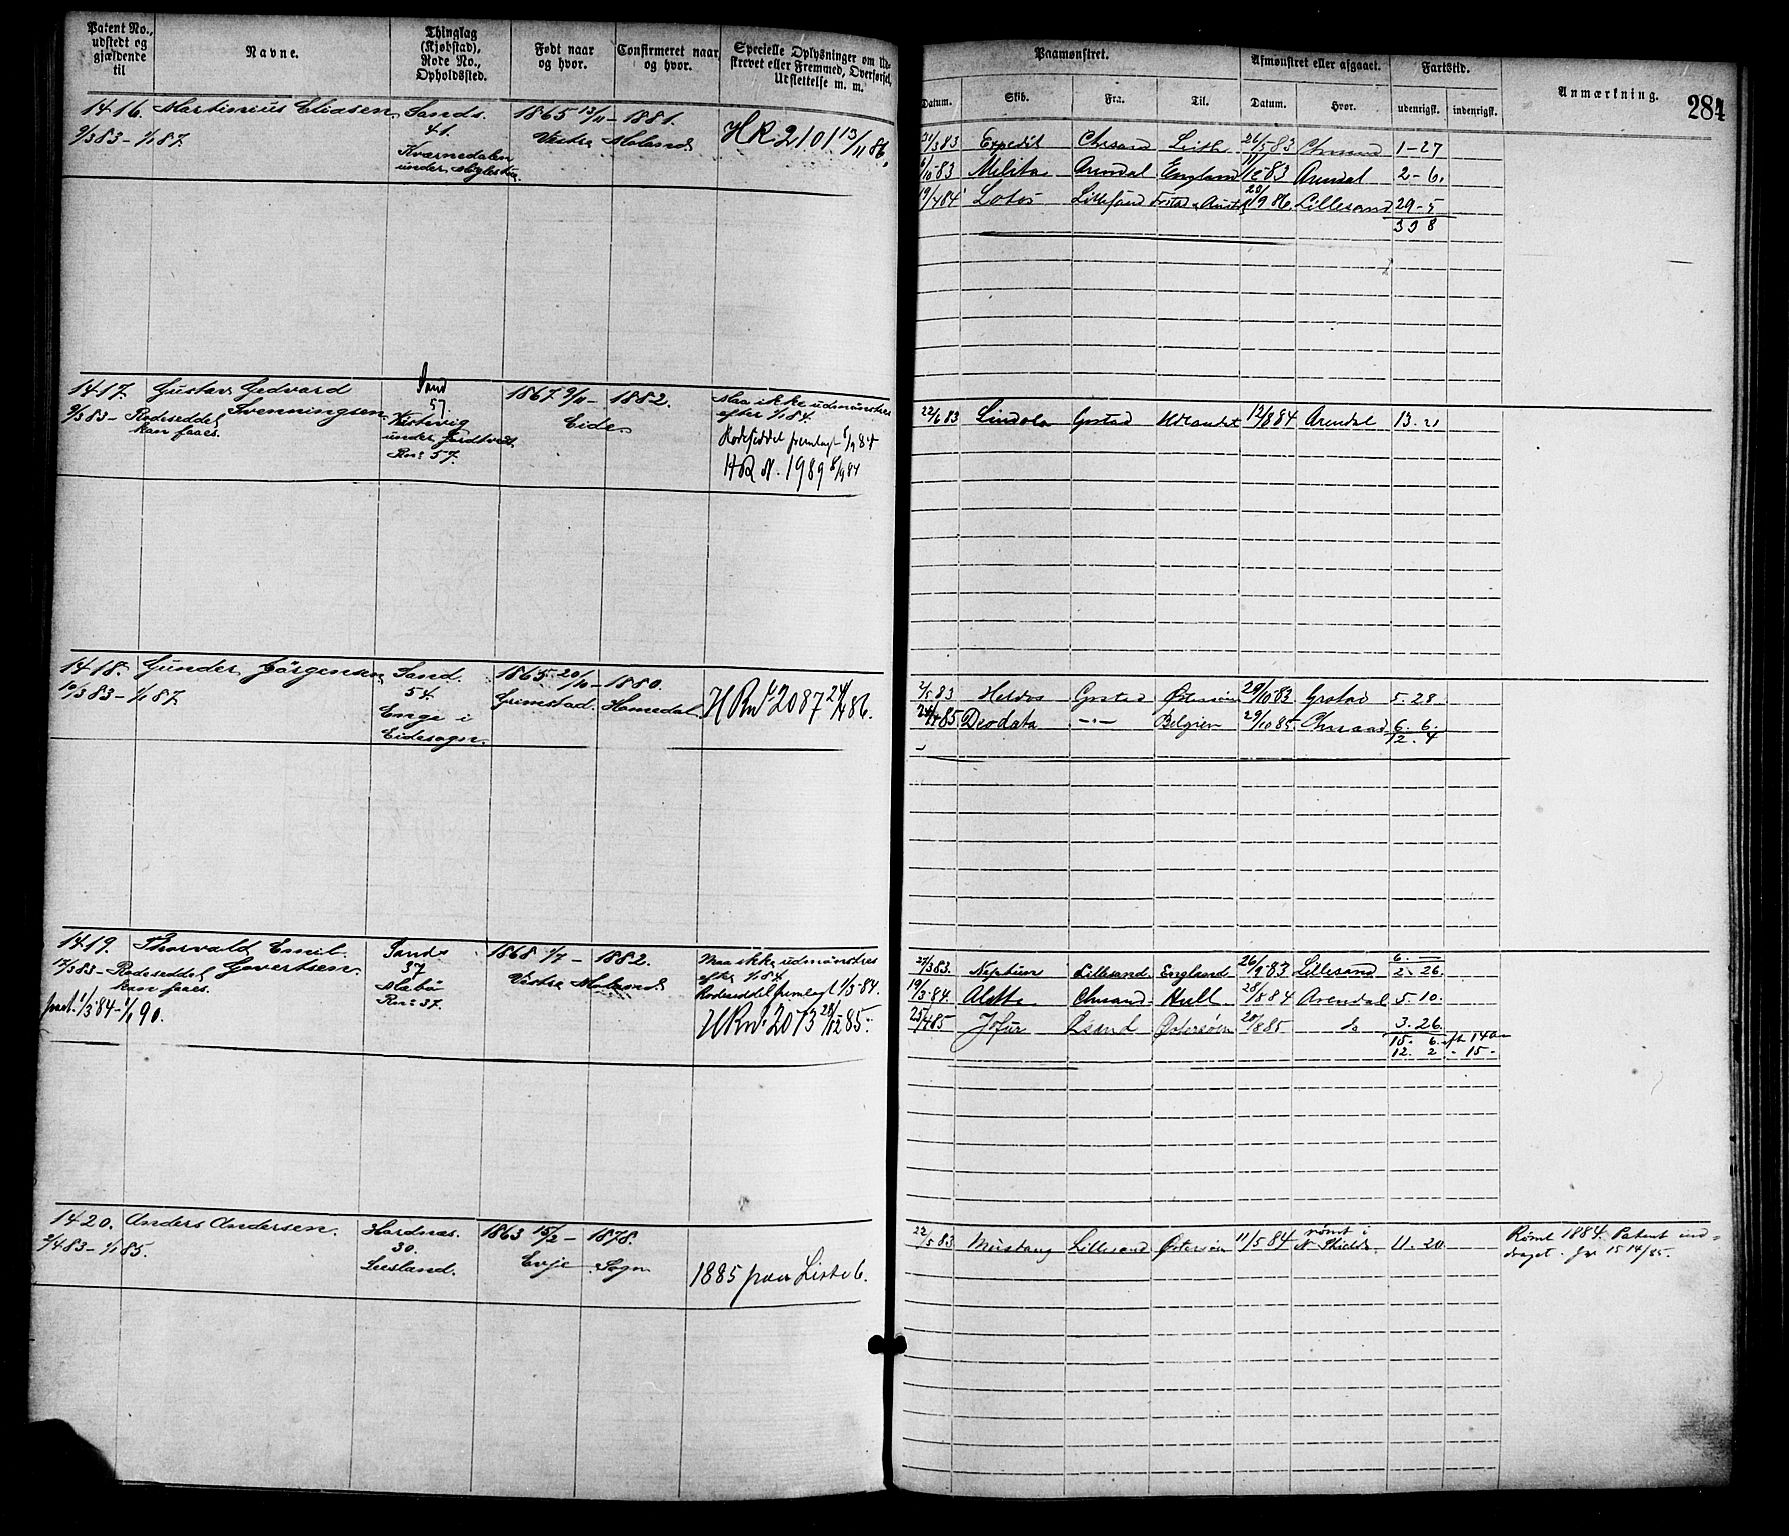 Patent No., udstedt og gjældende til
Navne.
Thinglag (Kjøbstad), Rode No., Opholdssted.
Født naar og hvor.
Confirmeret naar og hvor.
Specielle Oplysninger om Udskrevet eller Fremmed, Overførsel, Udslettelse m. m.
Paamønstret.
Datum. Skib. Fra. Til.
Afmønstret eller afgaaet.
Datum. Hvor.
Fartstid.
udenrigsk. indenrigsk.
Anmærkning.
284
1416. Martinius Eliasen
9/3 83 – 1/1 87.
Sands.
41.
Kværnedalen
under
1865 13/11 – 1881.
Vestre Moland
H R 2101 13/11 86.
83 Expedit Chrsand Leith 26/5 83 Chrsand 1-27
6/10 83 Melita Arendal England 83 Arendal 2-6.
19/4 84 Lotos Lillesand 86 Lillesand 29-5
1417. Gustav Gedvard
Svenningsen
9/3 83 – Rodeseddel
kan faaes.
Sand
57.
under
Rn: 57.
1867 9/11 – 1882.
Eide
Maa ikke udmønstres
efter 1/1 84.
Rodeseddel fremlagt 84
H R N. 1989 8/9 84
22/6 83 Lindola Grstad Udlandet 12/8 84 Arendal 13. 21
1418. Gunder Jörgensen
10/3 83 – 1/1 87.
Sand.
54.
Enge i
Eidesogn.
1865 20/10 – 1880.
Grimstad. Homedal
H R No 2087 86.
2/5 83 Heldos Grstad Östersöen 29/10 83 Grstad 5. 28
85 Deodata –"– Belgien 29/10 85 Chrsand 6. 6.
12. 4
1419. Thorvald Emil
Govertsen.
17/3 83 – Rodeseddel
kan faaes.
pat. 1/3 84 – 1/1 90.
Sands
37
Mæbö
Rn: 37.
1868 1/7 – 1882.
Vestre Moland
Maa ikke udmønstres
efter 1/1 84.
Rodeseddel fremlagt 1/3 84.
H R No 2073 85.
27/3 83. Neptun Lillesand England 26/9 83 Lillesand 2. 26.
19/3 84. Chrsand Hull 28/8 84 Arendal 5. 10.
25/4 85 Jofur Östersöen 20/8 85 do 3. 26.
15. 6.
12. 2 - 15 -
1420. Anders Andersen.
2/4 83 – 1/1 85.
Hordnæs.
30.
Liesland.
1863 15/2 – 1878.
Evje Sogn
1885 paa Liste 6.
22/5 83 Mustang Lillesand Östersöen 11/5 84 rømt i
N Shields. 11. 20
Rømt 1884. Patent ind-
draget. Jr 1514/85.